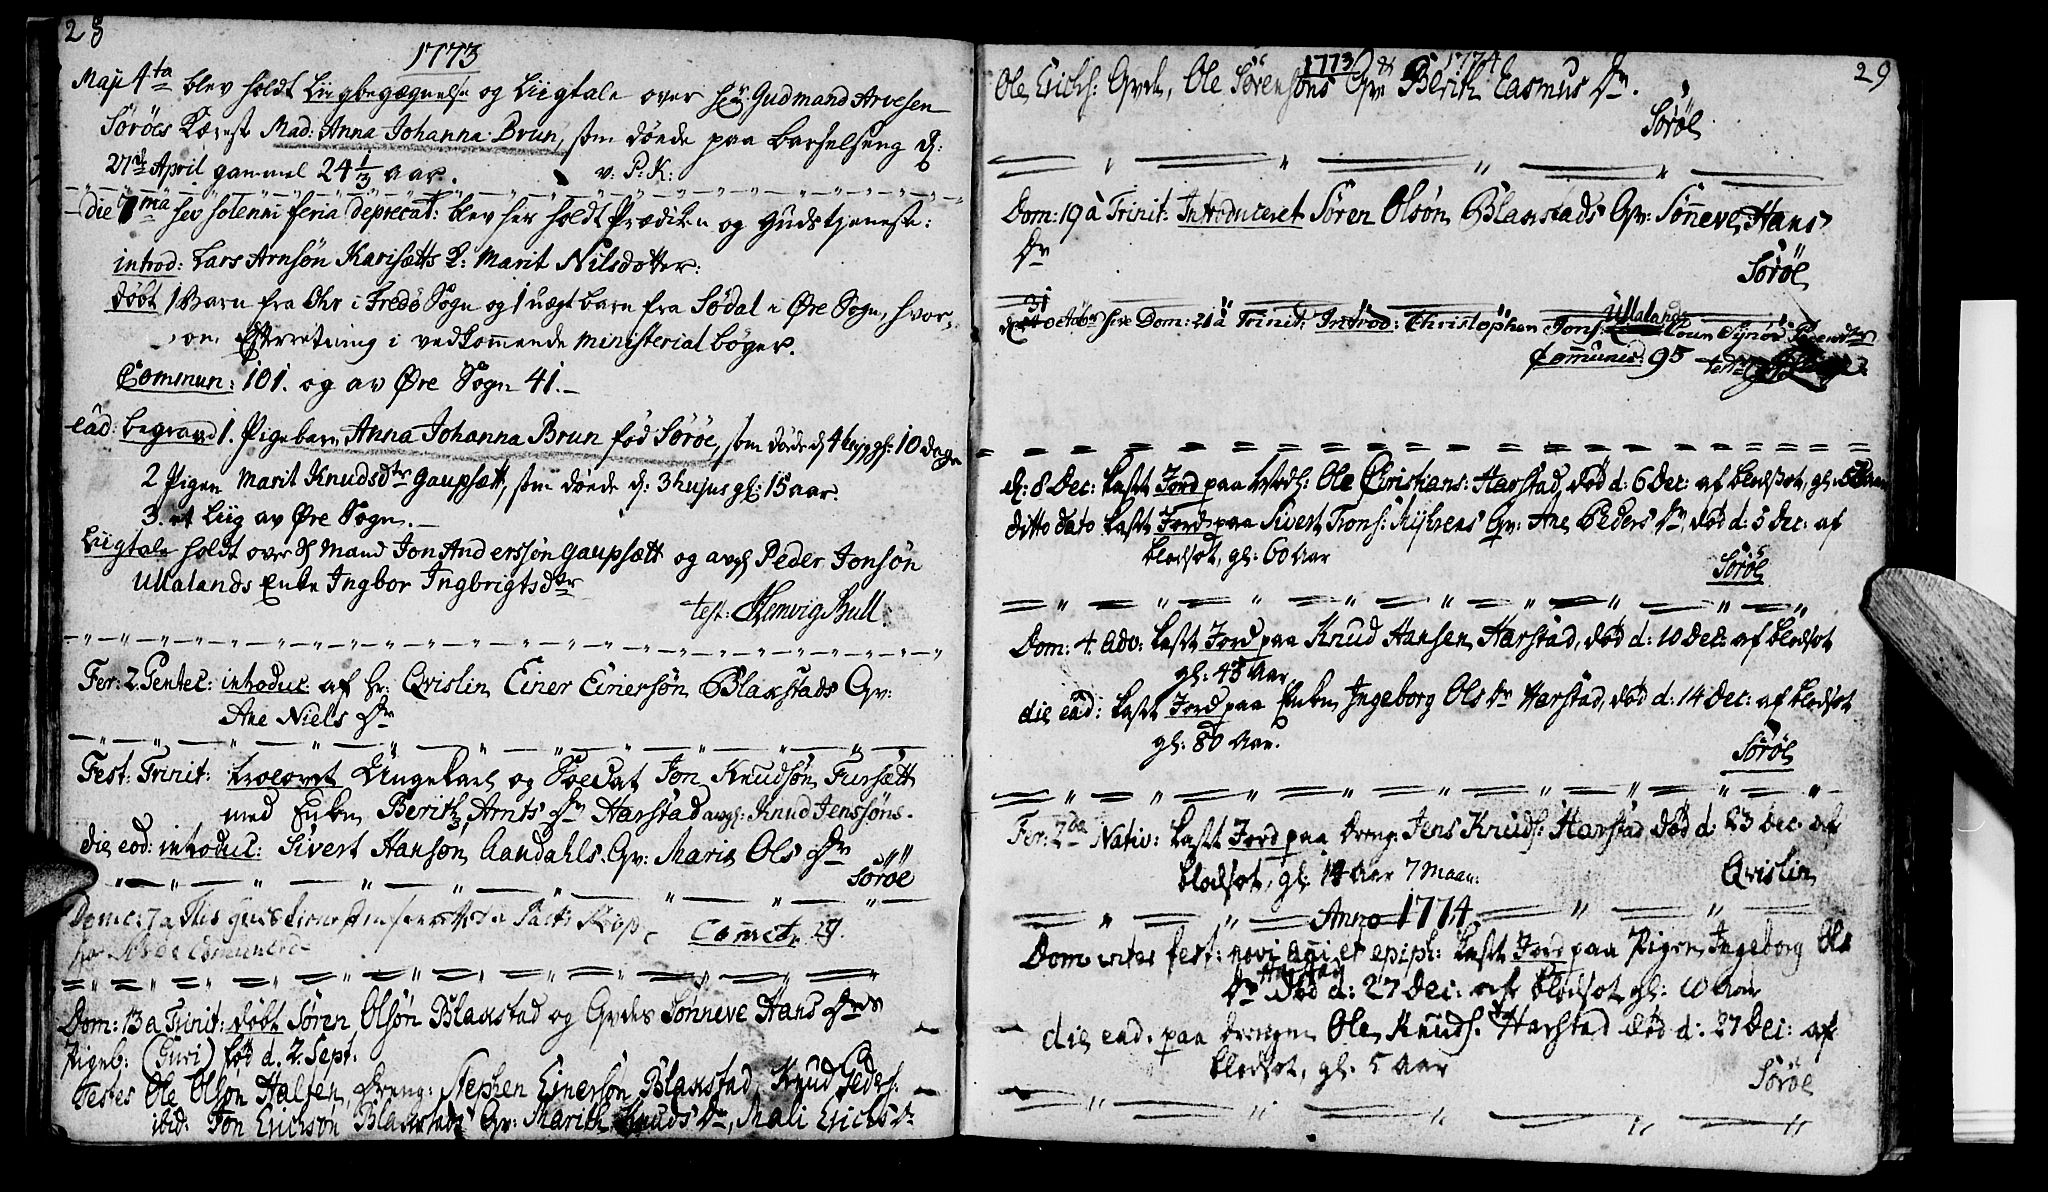 28
1773
Maji 4ta blev holdt Liigbegægnelse og Liigtale over Hr: Gudmand Arvesen
Sørøes Kæreste Mad: Anna Johanna Brun, som døede paa Barselseng d:
27de April gammel 24 1/3 aar. v: P: K:
die 7ma hej solenni feria deprecat: blev her holdt Prædiken og Gudstjeneste:
introd: Lars Arnsøn Karisætts K: Marit Nilsdotter:
døbt 1 Barn fra Ohr i Fredø Sogn og 1 uægt barn fra Sødal i Øre Sogn, hvor-
om Efterretning i vedkommende ministerial bøger.
Commun: 101. og av Øre Sogn 41.
eâd: begravd 1. Pigebarn Anna Johanna Brun fød Sørøe, som døde d 4 hujus gl: 10 dage
2 Pigen Marit Knudsdtr Gaupsætt, som døede d: 3 hujus gl: 15 aar.
3. et Liig av Øre Sogn.
Liigtale holdt over d: Mand Jon Anderssøn Gaupsætt og avg Peder Jonsøn
Ullalands Enke Ingbor Ingbrigtsdtr
test: Henvig Bull.
Fer: 2 Pentec: introduc: af Hr: Qvislin Einer Einersøn Blakstads Qv:
Ane Niels Dr
Fest: Trinit: troloret Ungekarl og Soldat Jon Knudsøn Fursætt
med Enken Berith Arnts Dr Harstad avgl: Knud Jenssøns.
die eod: introduc: Sivert Hansøn Aandahls Qv: Maria Ols Dr
Sørøe
Commct. 29.
Dom: 13 a Trinit: døbt Søren Olsøn Blakstad og Qvdes Sønneve Hans Drs
Pigeb: (Guri) fød d. 2. Sept.
Testes Ole Olson Halsen, Dreng: Stephen Einersøn Blakstad, Knud Peders:
ibid: Jon Erichsøn Blakstads Qv: Marith Knuds Dr, Mali Erichs Dr
1773 & 1774
29
Ole Erichs: Qvde, Ole Sørensøns Qv: Berith Rasmus Dr.
Sørøe
Dom: 19 a Trinit: Introduceret Søren Olsøn Blakstads Qv: Sønneve Hans
Dr
Sørøe
31 October sive Dom: 21 a Trinit: Introd: Christophen Jons: Ullalands Koun Synøv Sørensdtr
Communic: 95
d: 8 Dec: kast Jord paa Madh: Ole Christians: Harstad, død d: 6 Dec: af blodsot, gl:
ditto dato kast Jord paa Sivert Trons: Myhrens Qv: Ane Peders Dr, død d: 5 Dec: af
blodsot, gl: 60 Aar
Sørøe
Dom: 4 Adv: kast Jord paa Knud Hansen Harstad, død d: 10 Dec: af blodsot
gl: 45 Aar
die eâd: kast Jord paa Enken Ingeborg Ols Dr Harstad, død d: 14 Dec: af blodsot
gl: 80 Aar.
Sørøe
Fer: 2da Nativ: kast Jord paa Dreng: Jens Knuds: Harstad død d: 23 Dec: af
blodsot, gl: 14 Aar 7 Maan:
Qvislin
Anno 1774
Dom inter fest: novi anni et epiph: kast Jord paa Pigen Ingeborg Ols
Dr Harstad død d: 27 Dec: af blodsot gl: 10 Aar
die ead. paa Drengen Ole Knuds: Harstad død d: 27 Dec: af
blodsot, gl: 5 Aar
Sørøe